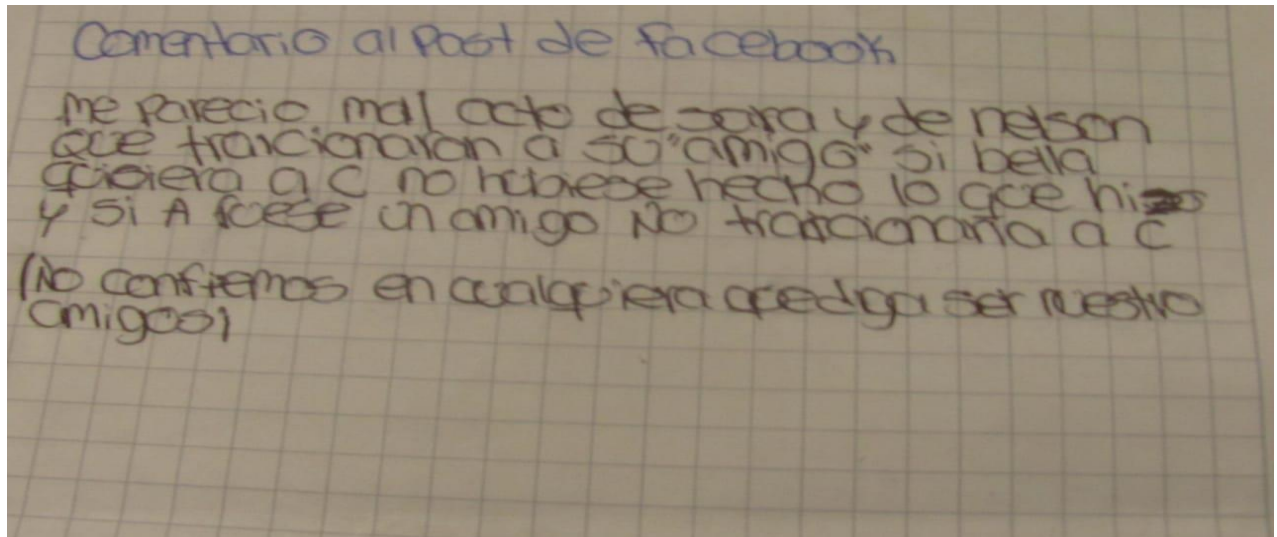 Comentario al Post de facebook
me parecio mal acto de sara y de nelson
que traicionaran a su "amigo" si bella
quisiera a C no hubiese hecho lo que hizo
y si A fuese un amigo No traicionaria a C
(No confiemos en cualquiera que diga ser nuestro
amigos)